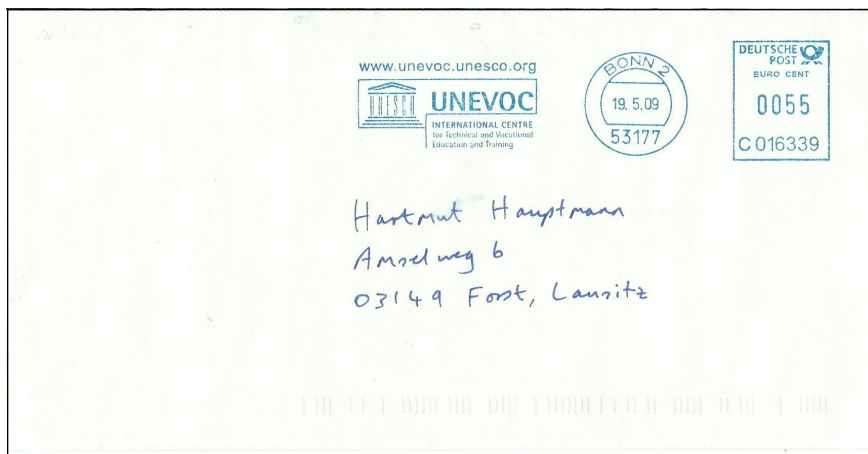 www.unevoc.unesco.org
UNESCO
UNEVOC
INTERNATIONAL CENTRE
for Technical and Vocational
Education and Training
BONN 2
19.5.09
53177
DEUTSCHE
POST
EURO CENT
0055
C016339
Hartmut Hauptmann
Amselweg 6
03149 Forst, Lausitz